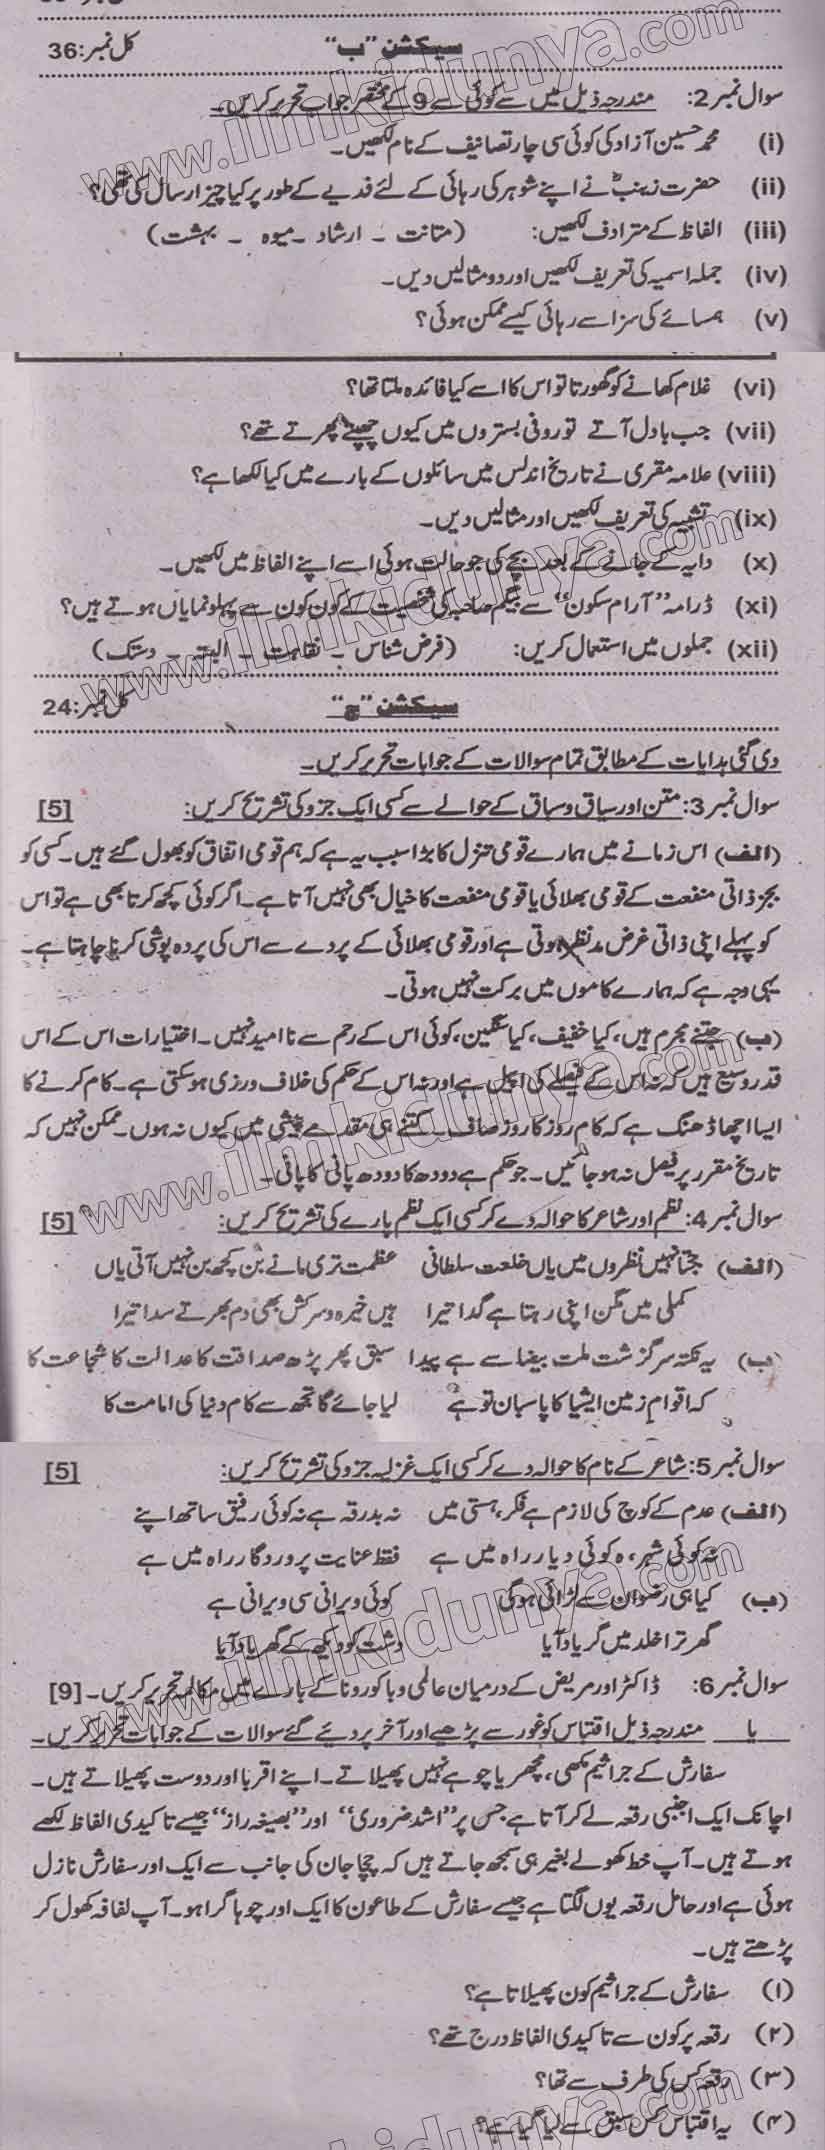 سیکشن "ب" کل نمبر:36
سوال نمبر2: مندرجہ ذیل میں سے کوئی سے 9 کے مختصر جواب تحریر کریں۔
(i) محمد حسین آزاد کی کوئی سی چار تصانیف کے نام لکھیں۔
(ii) حضرت زینبؓ نے اپنے شوہر کی رہائی کے لئے فدیے کے طور پر کیا چیز ارسال کی تھی؟
(iii) الفاظ کے مترادف لکھیں: (متانت ۔ ارشاد ۔ میوہ ۔ بہشت)
(iv) جملہ اسمیہ کی تعریف لکھیں اور دو مثالیں دیں۔
(v) ہمسائے کی سزا سے رہائی کیسے ممکن ہوئی؟
(vi) غلام کھانے کو گھورتا تو اس کا اسے کیا فائدہ ملتا تھا؟
(vii) جب بادل آتے تو روفی بستروں میں کیوں چھپتے پھرتے تھے؟
(viii) علامہ مقری نے تاریخ اندلس میں سائلوں کے بارے میں کیا لکھا ہے؟
(ix) تشبیہ کی تعریف لکھیں اور مثالیں دیں۔
(x) دایہ کے جانے کے بعد بچے کی جو حالت ہوئی اسے اپنے الفاظ میں لکھیں۔
(xi) ڈرامہ "آرام سکون" سے بیگم صاحبہ کی شخصیت کے کون کون سے پہلو نمایاں ہوتے ہیں؟
(xii) جملوں میں استعمال کریں: (فرض شناس ۔ نقاہت ۔ البتہ ۔ دستک)
سیکشن "ج" کل نمبر:24
دی گئی ہدایات کے مطابق تمام سوالات کے جوابات تحریر کریں۔
سوال نمبر3: متن اور سیاق و سباق کے حوالے سے کسی ایک جزو کی تشریح کریں: [5]
(الف) اس زمانے میں ہمارے قومی تنزل کا بڑا سبب یہ ہے کہ ہم قومی اتفاق کو بھول گئے ہیں۔ کسی کو
بجز ذاتی منفعت کے قومی بھلائی یا قومی منفعت کا خیال بھی نہیں آتا ہے۔ اگر کوئی کچھ کرتا بھی ہے تو اس
کو پہلے اپنی ذاتی غرض مدنظر ہوتی ہے اور قومی بھلائی کے پردے سے اس کی پردہ پوشی کرنا چاہتا ہے۔
یہی وجہ ہے کہ ہمارے کاموں میں برکت نہیں ہوتی۔
(ب) جتنے مجرم ہیں، کیا خفیف، کیا سنگین، کوئی اس کے رحم سے نا امید نہیں۔ اختیارات اس کے اس
قدر وسیع ہیں کہ نہ اس کے فیصلے کی اپیل ہے اور نہ اس کے حکم کی خلاف ورزی ہوسکتی ہے۔ کام کرنے کا
ایسا اچھا ڈھنگ ہے کہ کام روز کا روز صاف۔ کتنے ہی مقدمے پیشی میں کیوں نہ ہوں۔ ممکن نہیں کہ
تاریخ مقرر پر فیصل نہ ہو جائیں۔ جو حکم ہے دودھ کا دودھ پانی کا پانی۔
سوال نمبر4: نظم اور شاعر کا حوالہ دے کر کسی ایک نظم پارے کی تشریح کریں: [5]
(الف) جچتا نہیں نظروں میں یاں خلعت سلطانی عظمت تری مانے بن کچھ بن نہیں آتی یاں
کملی میں مگن اپنی رہتا ہے گدا تیرا ہیں خیرہ و سرکش بھی دم بھرتے سدا تیرا
(ب) یہ نکتہ سرگزشت ملت بیضا سے ہے پیدا سبق پھر پڑھ صداقت کا عدالت کا شجاعت کا
کہ اقوام زمین ایشیا کا پاسبان تو ہے لیا جائے گا تجھ سے کام دنیا کی امامت کا
سوال نمبر5: شاعر کے نام کا حوالہ دے کر کسی ایک غزلیہ جزو کی تشریح کریں: [5]
(الف) عدم کے کوچ کی لازم ہے فکر، ہستی میں نہ بدرقہ ہے نہ کوئی رفیق ساتھ اپنے
نہ کوئی شہر، نہ کوئی دیار راہ میں ہے فقط عنایت پروردگار راہ میں ہے
(ب) کیا ہی رضوان سے لڑائی ہوگی کوئی ویرانی سی ویرانی ہے
گھر ترا خلد میں گر یاد آیا دشت کو دیکھ کے گھر یاد آیا
سوال نمبر6: ڈاکٹر اور مریض کے درمیان عالمی وبا کورونا کے بارے میں مکالمہ تحریر کریں۔ [9]
یا مندرجہ ذیل اقتباس کو غور سے پڑھیے اور آخر پر دیئے گئے سوالات کے جوابات تحریر کریں۔
سفارش کے جراثیم مکھی، مچھر یا چوہے نہیں پھیلاتے۔ اپنے اقربا اور دوست پھیلاتے ہیں۔
اچانک ایک اجنبی رقعہ لے کر آتا ہے جس پر "اشد ضروری" اور "بصیغہ راز" جیسے تاکیدی الفاظ لکھے
ہوتے ہیں۔ آپ خط کھولے بغیر ہی سمجھ جاتے ہیں کہ چچا جان کی جانب سے ایک اور سفارش نازل
ہوئی ہے اور حامل رقعہ یوں لگتا ہے جیسے سفارش کے طاعون کا ایک اور چوہا گرا ہو۔ آپ لفافہ کھول کر
پڑھتے ہیں۔
(۱) سفارش کے جراثیم کون پھیلاتا ہے؟
(۲) رقعہ پر کون سے تاکیدی الفاظ درج تھے؟
(۳) رقعہ کس کی طرف سے تھا؟
(۴) یہ اقتباس کس سبق سے لیا گیا ہے؟
www.ilmkidunya.com
www.ilmkidunya.com
www.ilmkidunya.com
www.ilmkidunya.com
ilmkidunya.com